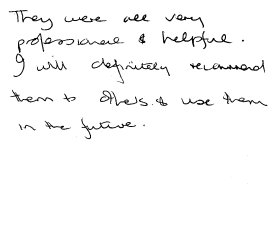 They were all very
professional & helpful.
I will definitely recommend
them to others & use them
in the future.